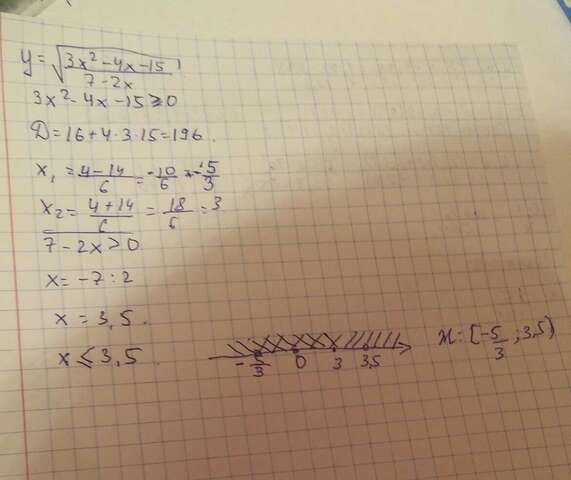 y = √((3x² - 4x - 15)/(7 - 2x))
3x² - 4x - 15 ≥ 0
D = 16 + 4·3·15 = 196.
x₁ = (4 - 14)/6 = -10/6 = -5/3
x₂ = (4 + 14)/6 = 18/6 = 3
7 - 2x > 0
x = -7 : 2
x = 3,5.
x ≤ 3,5
-5/3 0 3 3,5
x: [-5/3; 3,5)